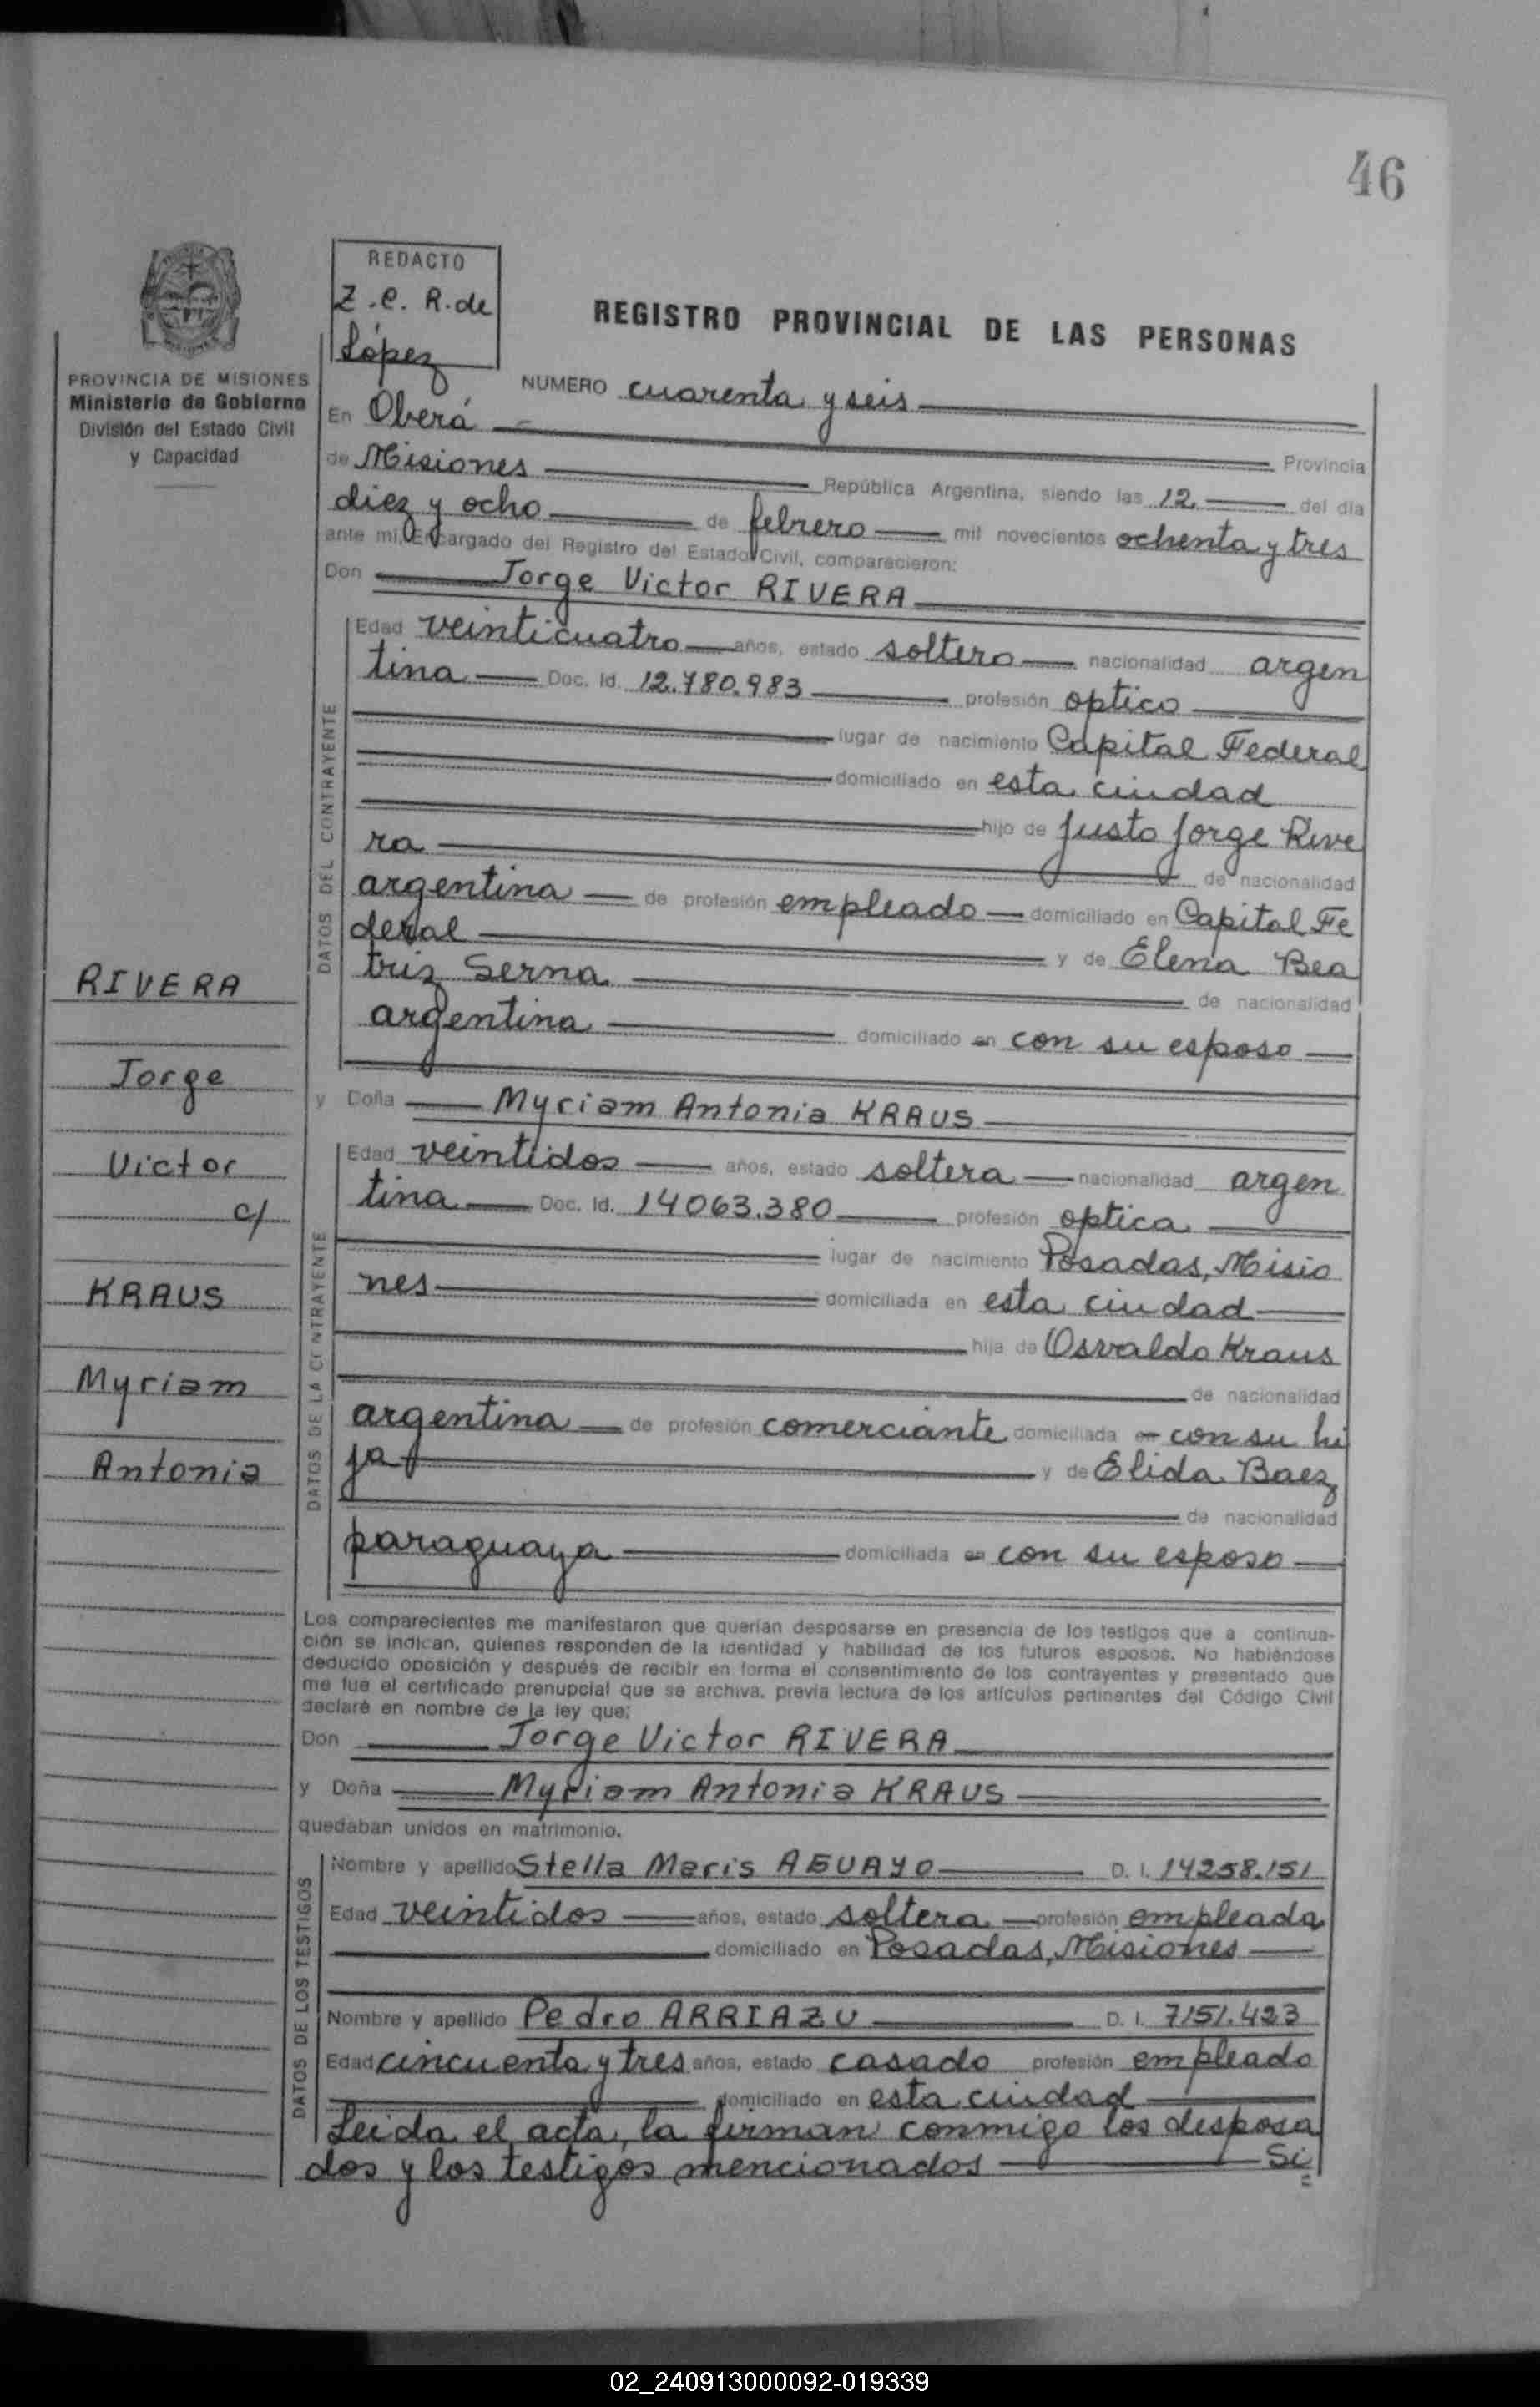 46
REDACTO
Z.C. R. de
López
REGISTRO PROVINCIAL DE LAS PERSONAS
PROVINCIA DE MISIONES
Ministerio de Gobierno
División del Estado Civil
y Capacidad
NUMERO cuarenta y seis
En Oberá
Provincia
de Misiones República Argentina, siendo las 12 del día
diez y ocho de febrero mil novecientos ochenta y tres
ante mi, Encargado del Registro del Estado Civil, comparecieron:
Don Jorge Victor RIVERA
DATOS DEL CONTRAYENTE
Edad veinticuatro años, estado soltero nacionalidad argen
tina Doc. Id. 12.780.983 profesión optico
lugar de nacimiento Capital Federal
domiciliado en esta ciudad
hijo de Justo Jorge Rive
ra de nacionalidad
argentina de profesión empleado domiciliado en Capital Fe
deral y de Elena Bea
triz Serna de nacionalidad
argentina domiciliado en con su esposo
y Doña Myriam Antonia KRAUS
DATOS DE LA CONTRAYENTE
Edad veintidos años, estado soltera nacionalidad argen
tina Doc. Id. 14063.380 profesión optica
lugar de nacimiento Posadas, Misio
nes domiciliada en esta ciudad
hija de Osvaldo Kraus
de nacionalidad
argentina de profesión comerciante domiciliada en con su hi
ja y de Elida Baez
de nacionalidad
paraguaya domiciliada en con su esposo
RIVERA
Jorge
Victor
c/
KRAUS
Myriam
Antonia
Los comparecientes me manifestaron que querían desposarse en presencia de los testigos que a continua-
ción se indican, quienes responden de la identidad y habilidad de los futuros esposos. No habiéndose
deducido oposición y después de recibir en forma el consentimiento de los contrayentes y presentado que
me fue el certificado prenupcial que se archiva, previa lectura de los artículos pertinentes del Código Civil
declaré en nombre de la ley que:
Don Jorge Victor RIVERA
y Doña Myriam Antonia KRAUS
quedaban unidos en matrimonio.
DATOS DE LOS TESTIGOS
Nombre y apellido Stella Maris AGUAYO D. I. 14258.151
Edad veintidos años, estado soltera profesión empleada
domiciliado en Posadas, Misiones
Nombre y apellido Pedro ARRIAZU D. I. 7151.423
Edad cincuenta y tres años, estado casado profesión empleado
domiciliado en esta ciudad
Leida el acta, la firman conmigo los desposa
dos y los testigos mencionados Si
02_240913000092-019339